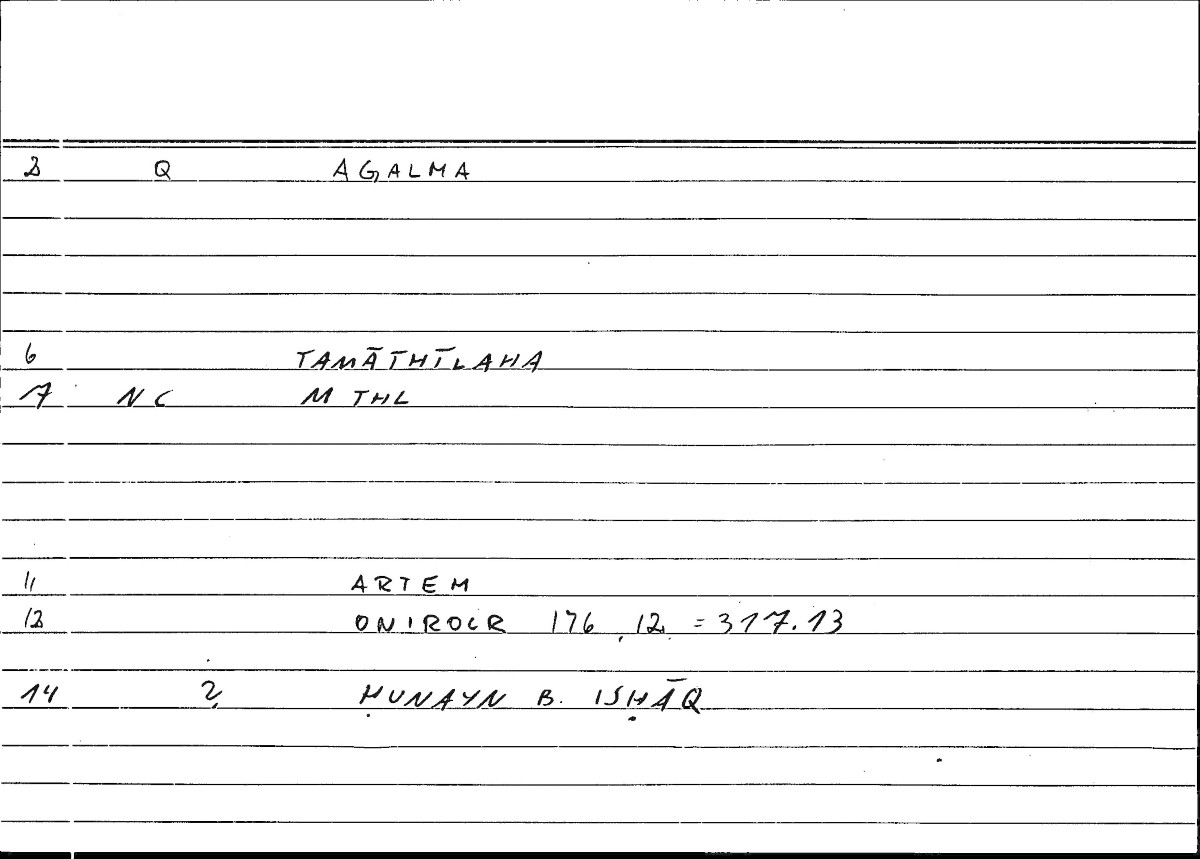 2 Q AGALMA
6 TAMĀTHĪLAHA
7 NC MTHL
11 ARTEM
12 ONIROCR 176.12 = 317.13
14 2 ḤUNAYN B. ISḤĀQ